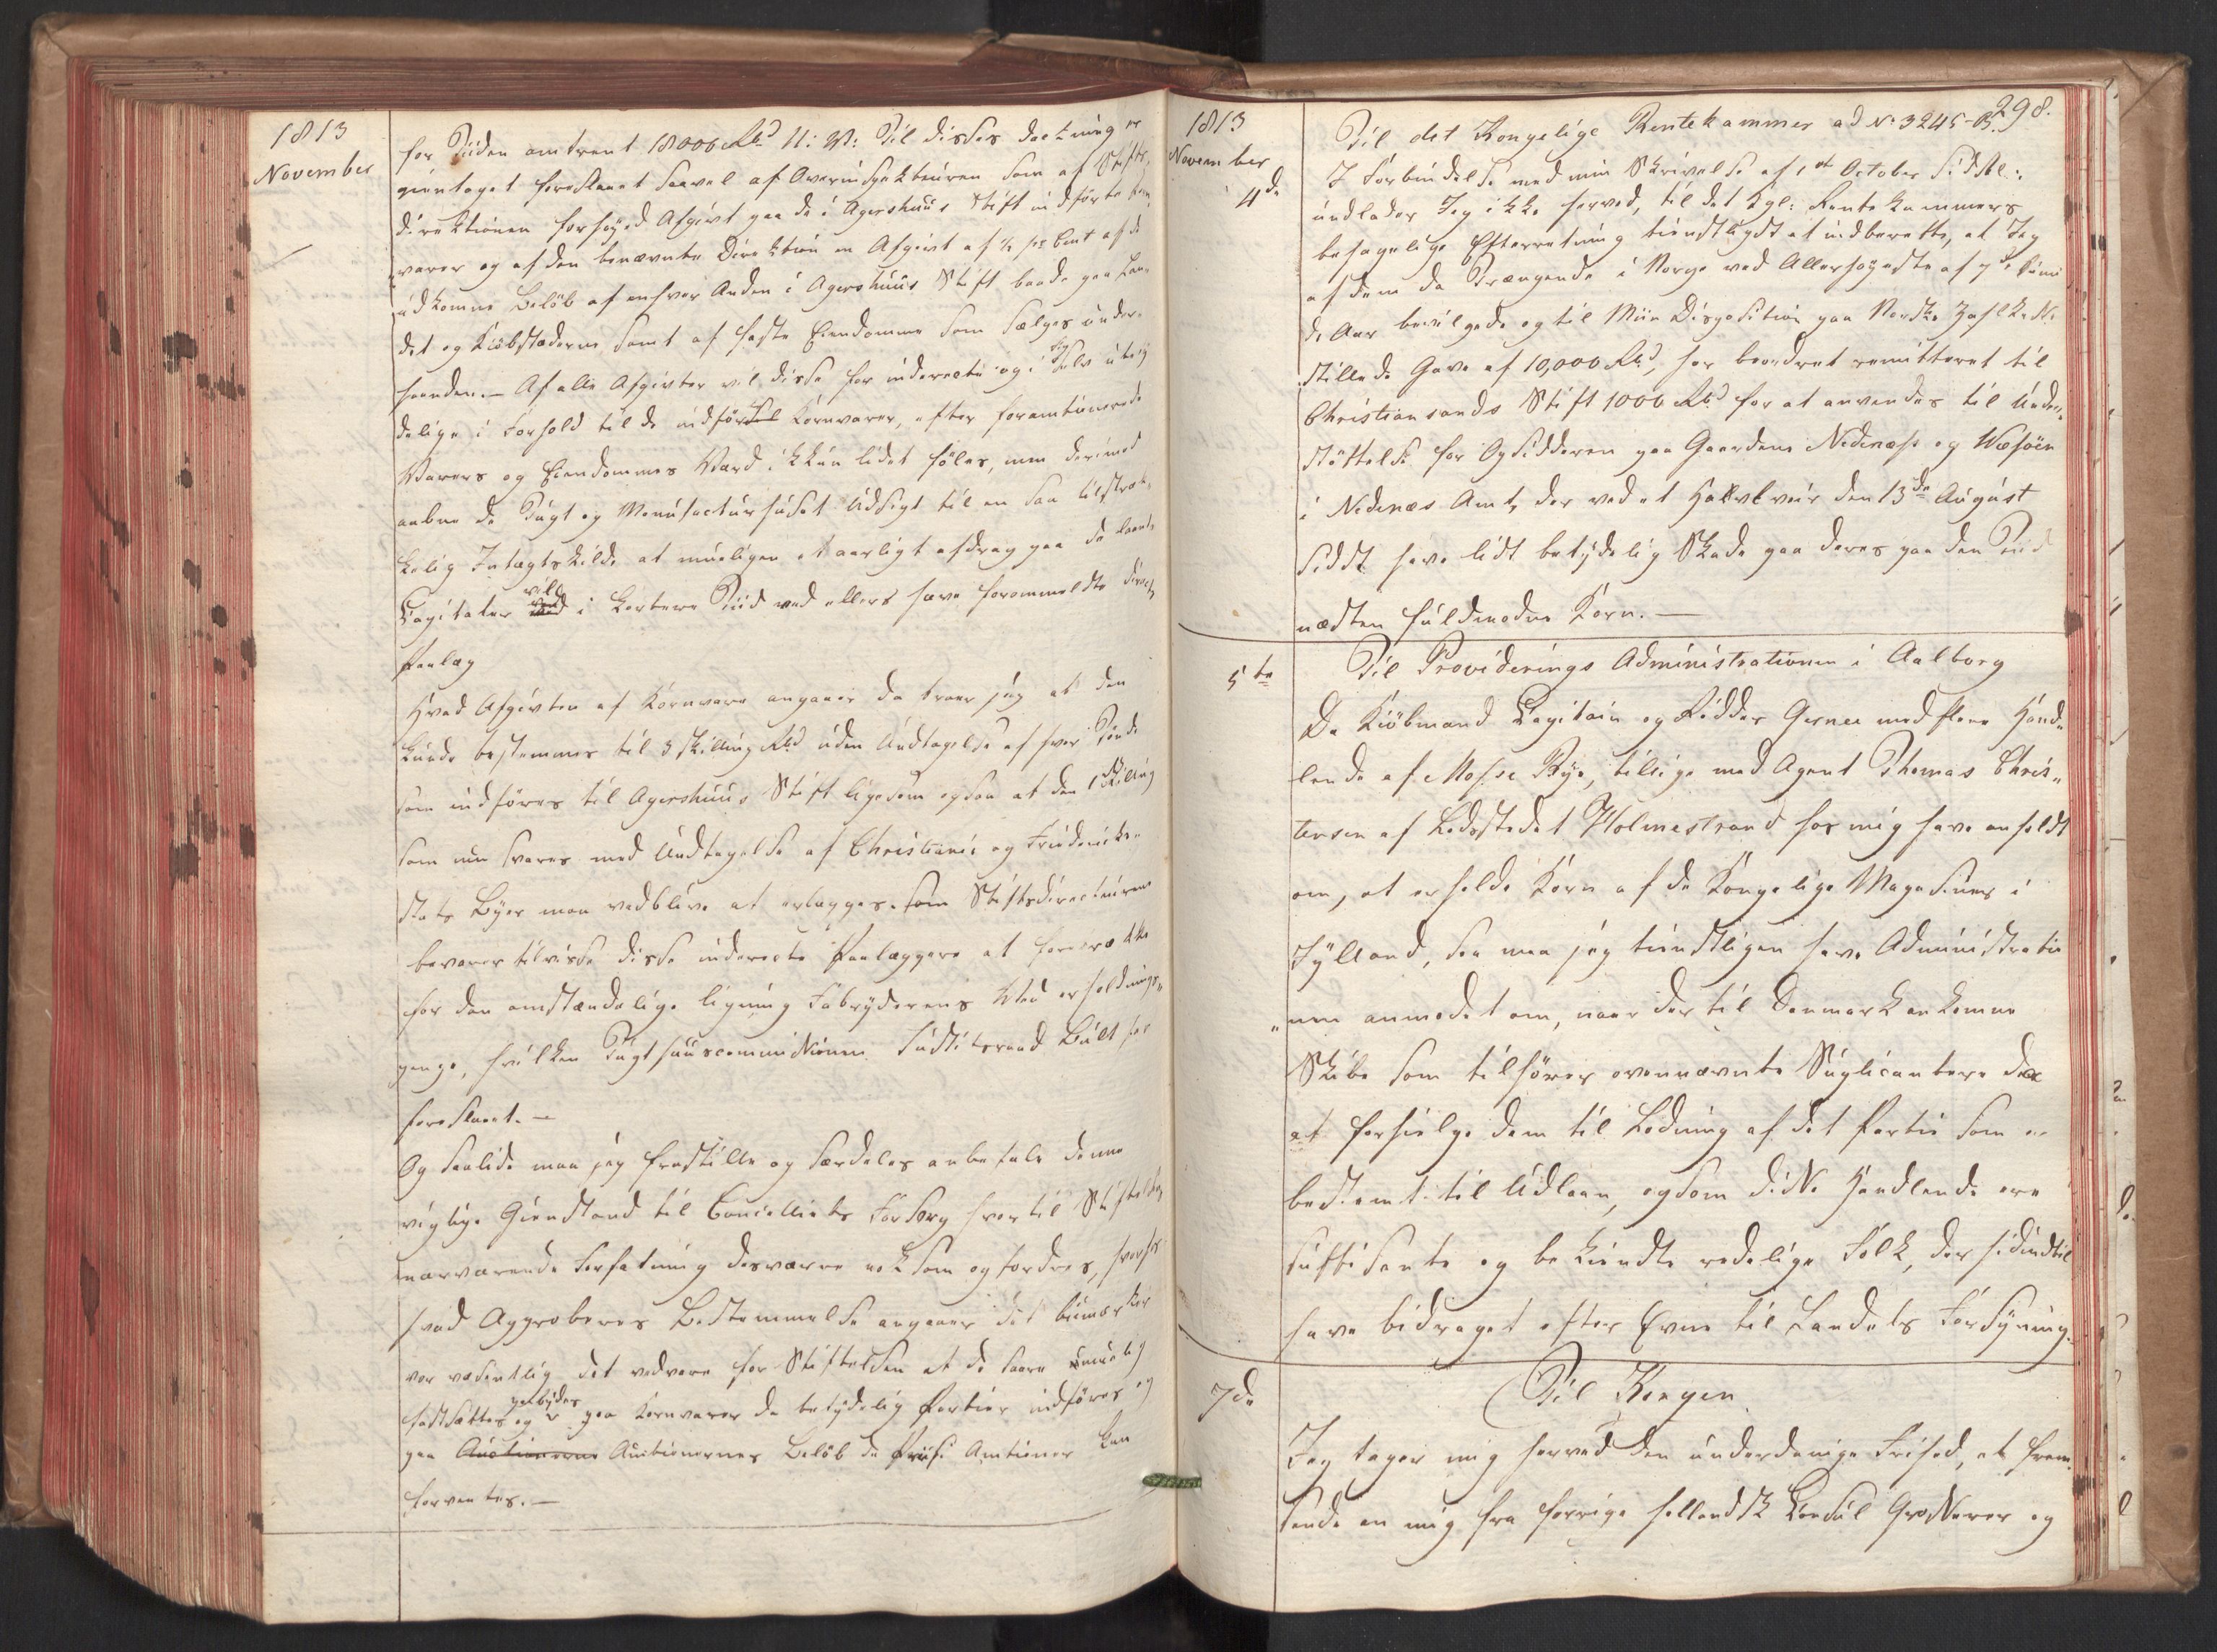 1813
November
for Tiiden omtrent 18000 Rbd N: V: Til disses dækning er
gientaget foreslaaet saavel af Overinspekteuren som af Stifts,
direktionen forhøyed Afgivt paa de i Agershuus Stift indførte korn
varer og af den benævnte Direktion en Afgivt af ½ pr Cent af de
udkomne Beløb af enhver Anden i Agershuus Stift baade paa Lan,
det og Kiøbstæderne samt af faste Eiendomme som sælges under
haanden. – Af alle Afgivter vil disse for inderecte og i sig selv ubety
delige i Forhold til de indførte Kornvarer, efter foramtionerede
Varers og Eiendommes Værd ikkun lidet føles, men derimod
aabne de Tugt og Manufacturhuset Udsigt til en saa tilstræk,
kelig Indtægtskilde at mueligen et aarligt afdrag paa de laante
Capitaler vil i kortere Tiid end ellers have forommeldte direct
Paalæg
Hvad Afgivten af Kornvare angaaer da troer jeg at den
kunde bestemmes til 3 skilling Rbd uden Undtagelse af hver Tønde
som indføres til Agershuus Stift ligesom ogsaa at den 1 Skilling
som nu svares med Undtagelse af Christiania og Fridericks,,
stads Byer maa vedblive at erlægges. som Stiftsdirecteurene
bevarer tilvisse disse inderecte Paalæggere at foretrække
for den omstændelige ligning Fabryderens Ved erholdnings,,
penge, hvilken Tugthuuscommissionen Justitsraad Bull har
foreslaaet. –
Og saalede maa jeg fremstille og særdeles anbefale denne
vigtige Gienstand til Cancelliets Forsorg hvortil Stiftelsens
nærværende Forfatning desværre nok som opfordres, hvorfor
hvad Aggrobernes Bestemmelse angaaer det bemærker
var væsentlig det vedvare for Stiftelsen at de saare umuelig
fastsættes og paabydes paa Kornvarer da betydelig Partier indføres og
paa Auctionerne Auctionernes Beløb da Priise Auctioner kan
forventes. –
1813
November
4de
298.
Til det Kongelige Rentekammer ad No 3245-B.
I Forbindelse med min Skrivelse af 1st October sidstl:
undlader Jeg ikke herved, til det kgl: Rente kammers
behagelige Efterretning tienstligst at indberette, at Jeg
af dem da Trængende i Norge ved Allerhøyeste af 7de Juni
d. Aar bevilgede og til Min Disposition paa Norske Zahlkasse
stillede Gave af 10,000 Rbd, har beordret remitteret til
Christiansands Stift 1000 Rbd for at anvendes til Under,,
støttelse for Opsidderen paa Gaardene Nedenæs og Wæsøen
i Nedenæs Amt, der ved et Haglveir den 13de August
sidst have lidt betydelig Skade paa deres paa den Tiid
næsten fuldmodne Korn. –
5te
Til Providerings Administrationen i Aalborg
Da Kiøbmand Capitain og Ridder Gerner med flere Hand,
lende af Mosse Bye, tillige med Agent Thomas Chris,,
tensen af Ladestedet Holmestrand hos mig have anholdt
om, at erholde Korn af de Kongelige Magasiner i
Jylland, saa maa jeg tienstligen have Administratio
,,nen anmodet om, naar der til Danmark ankomne
Skibe som tilhører ovennævnte Suplicantere da
at forhielpe dem til Ladning af det Partie som er
bestemt til Udlaan, ogsom disse Handlende ere
suffisante og bekiendte redelige Folk, der hidindtil
have bidraget efter Evne til Landets Forsyning.
7de
Til Kongen
Jeg tager mig herved den underdanige Frihed, at frem
sende en mig fra forrige hollandsk Consul Grosserer og